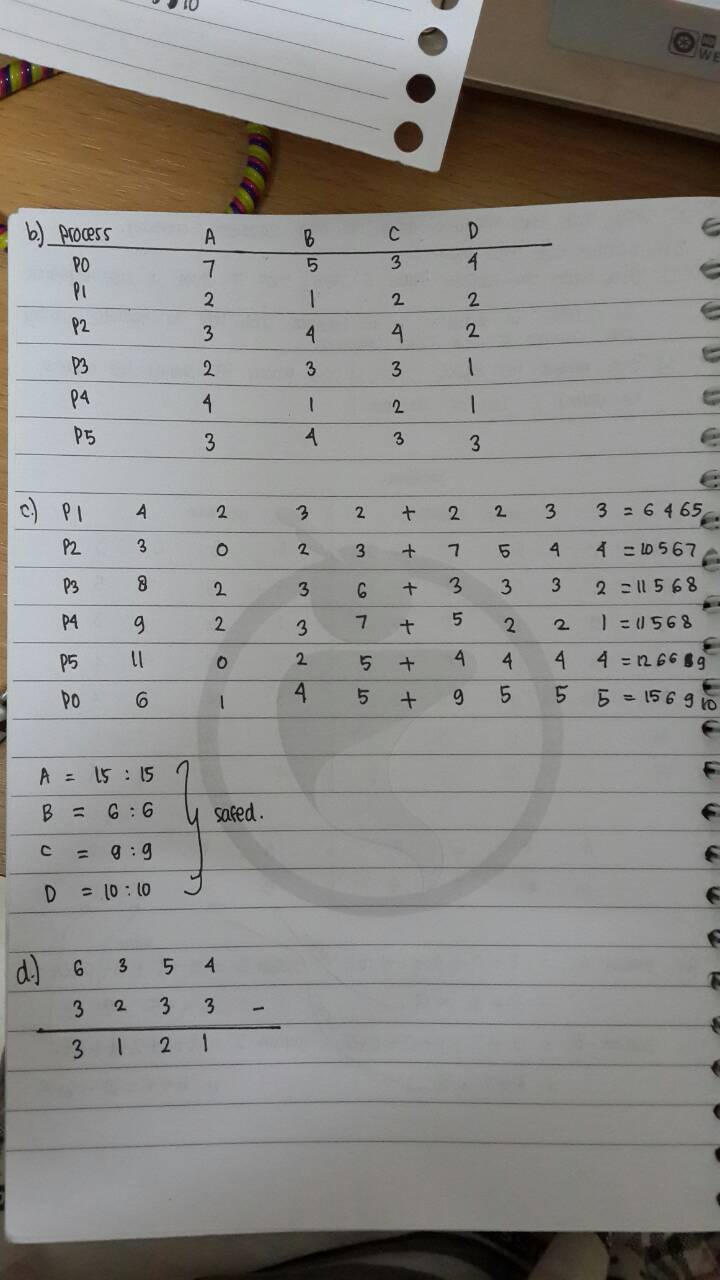 10
WE
b.) Process A B C D
P0 7 5 3 4
P1 2 1 2 2
P2 3 4 4 2
P3 2 3 3 1
P4 4 1 2 1
P5 3 4 3 3
c.) P1 4 2 3 2 + 2 2 3 3 = 6 4 6 5
P2 3 0 2 3 + 7 5 4 4 = 10 5 6 7
P3 8 2 3 6 + 3 3 3 2 = 11 5 6 8
P4 9 2 3 7 + 5 2 2 1 = 11 5 6 8
P5 11 0 2 5 + 4 4 4 4 = 12 6 6 9
P0 6 1 4 5 + 9 5 5 5 = 15 6 9 10
A = 15 : 15
B = 6 : 6
safed.
C = 9 : 9
D = 10 : 10
d.) 6 3 5 4
3 2 3 3 -
3 1 2 1